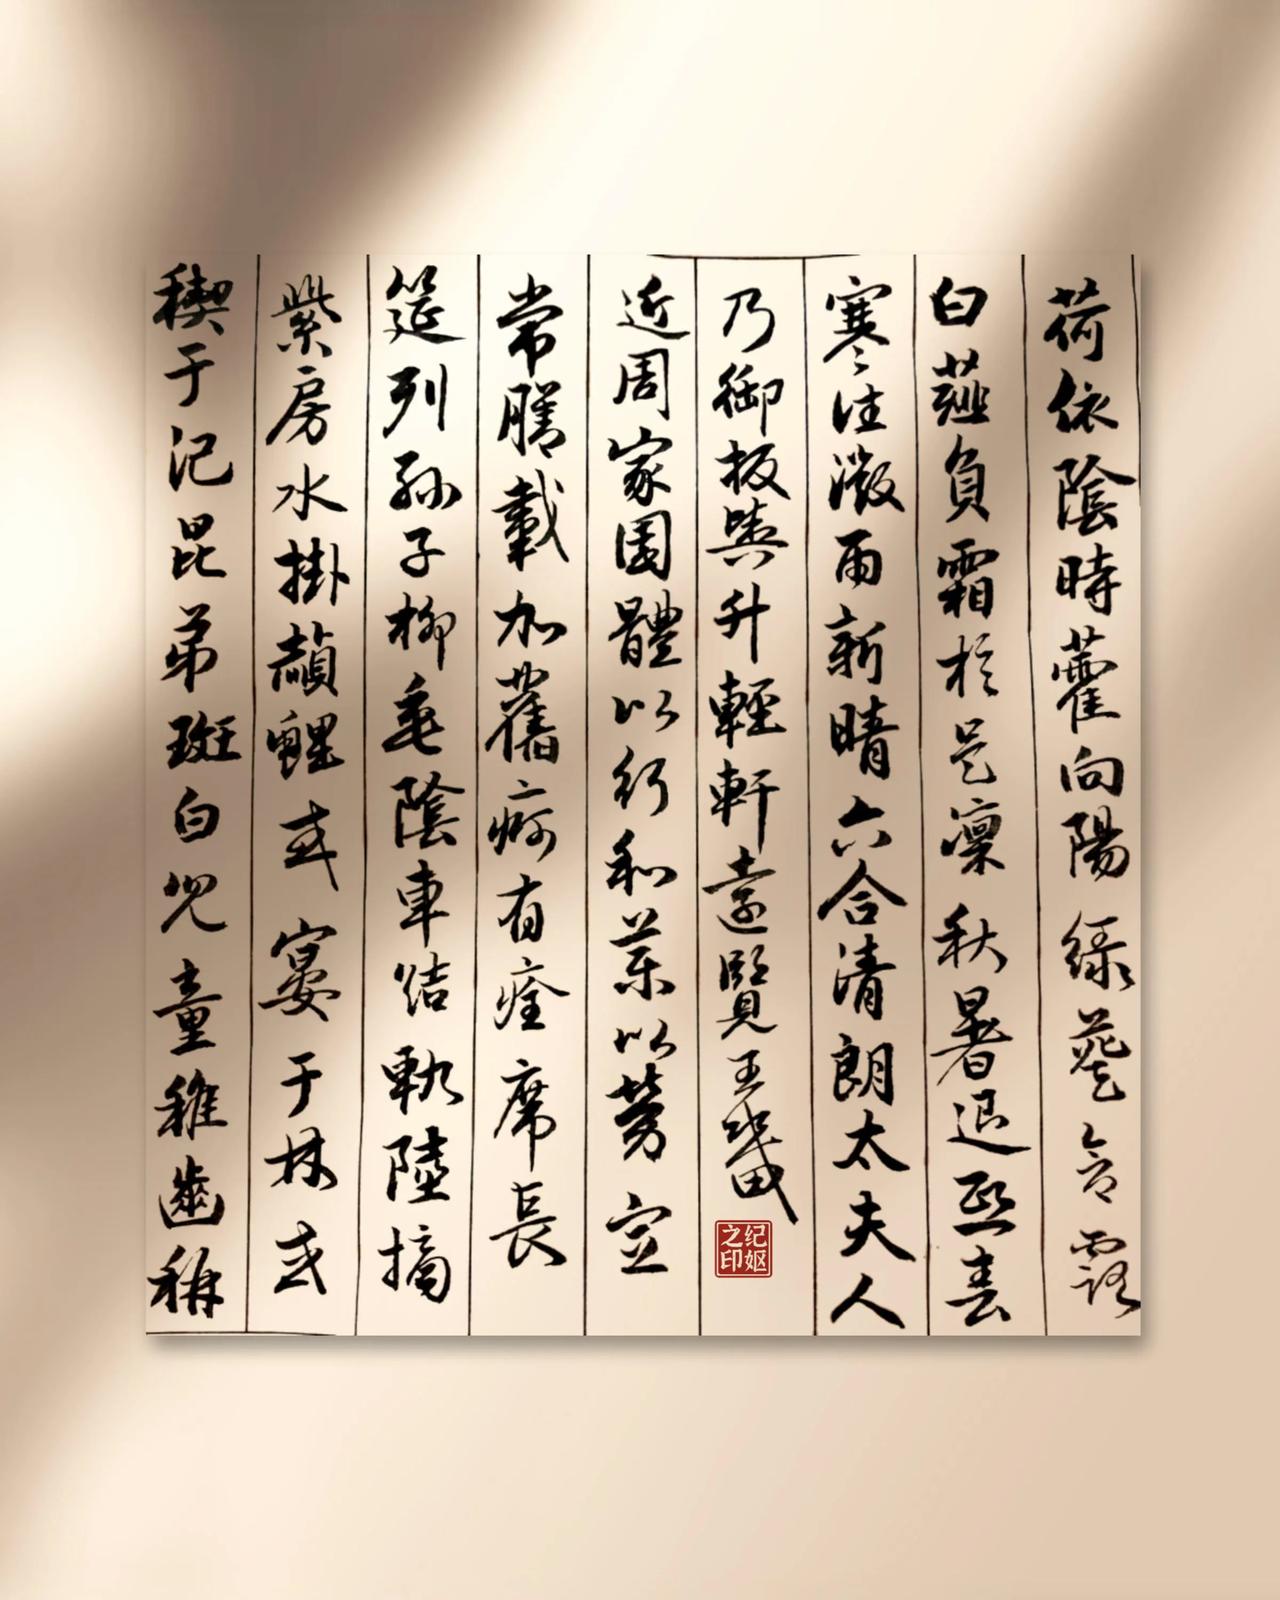 荷依陰時藿向陽緑葵含露
白薤負霜於是凛秋暑退熙春
寒往微雨新晴六合清朗太夫人
乃御板輿升輕軒遠覽王畿
近周家園體以行和藥以勞宣
常膳載加舊痾有痊席長
筵列孫子柳垂陰車結軌陸摘
紫房水掛赬鯉或宴于林或
稧于汜昆弟斑白兒童稚齒稱
纪妪之印